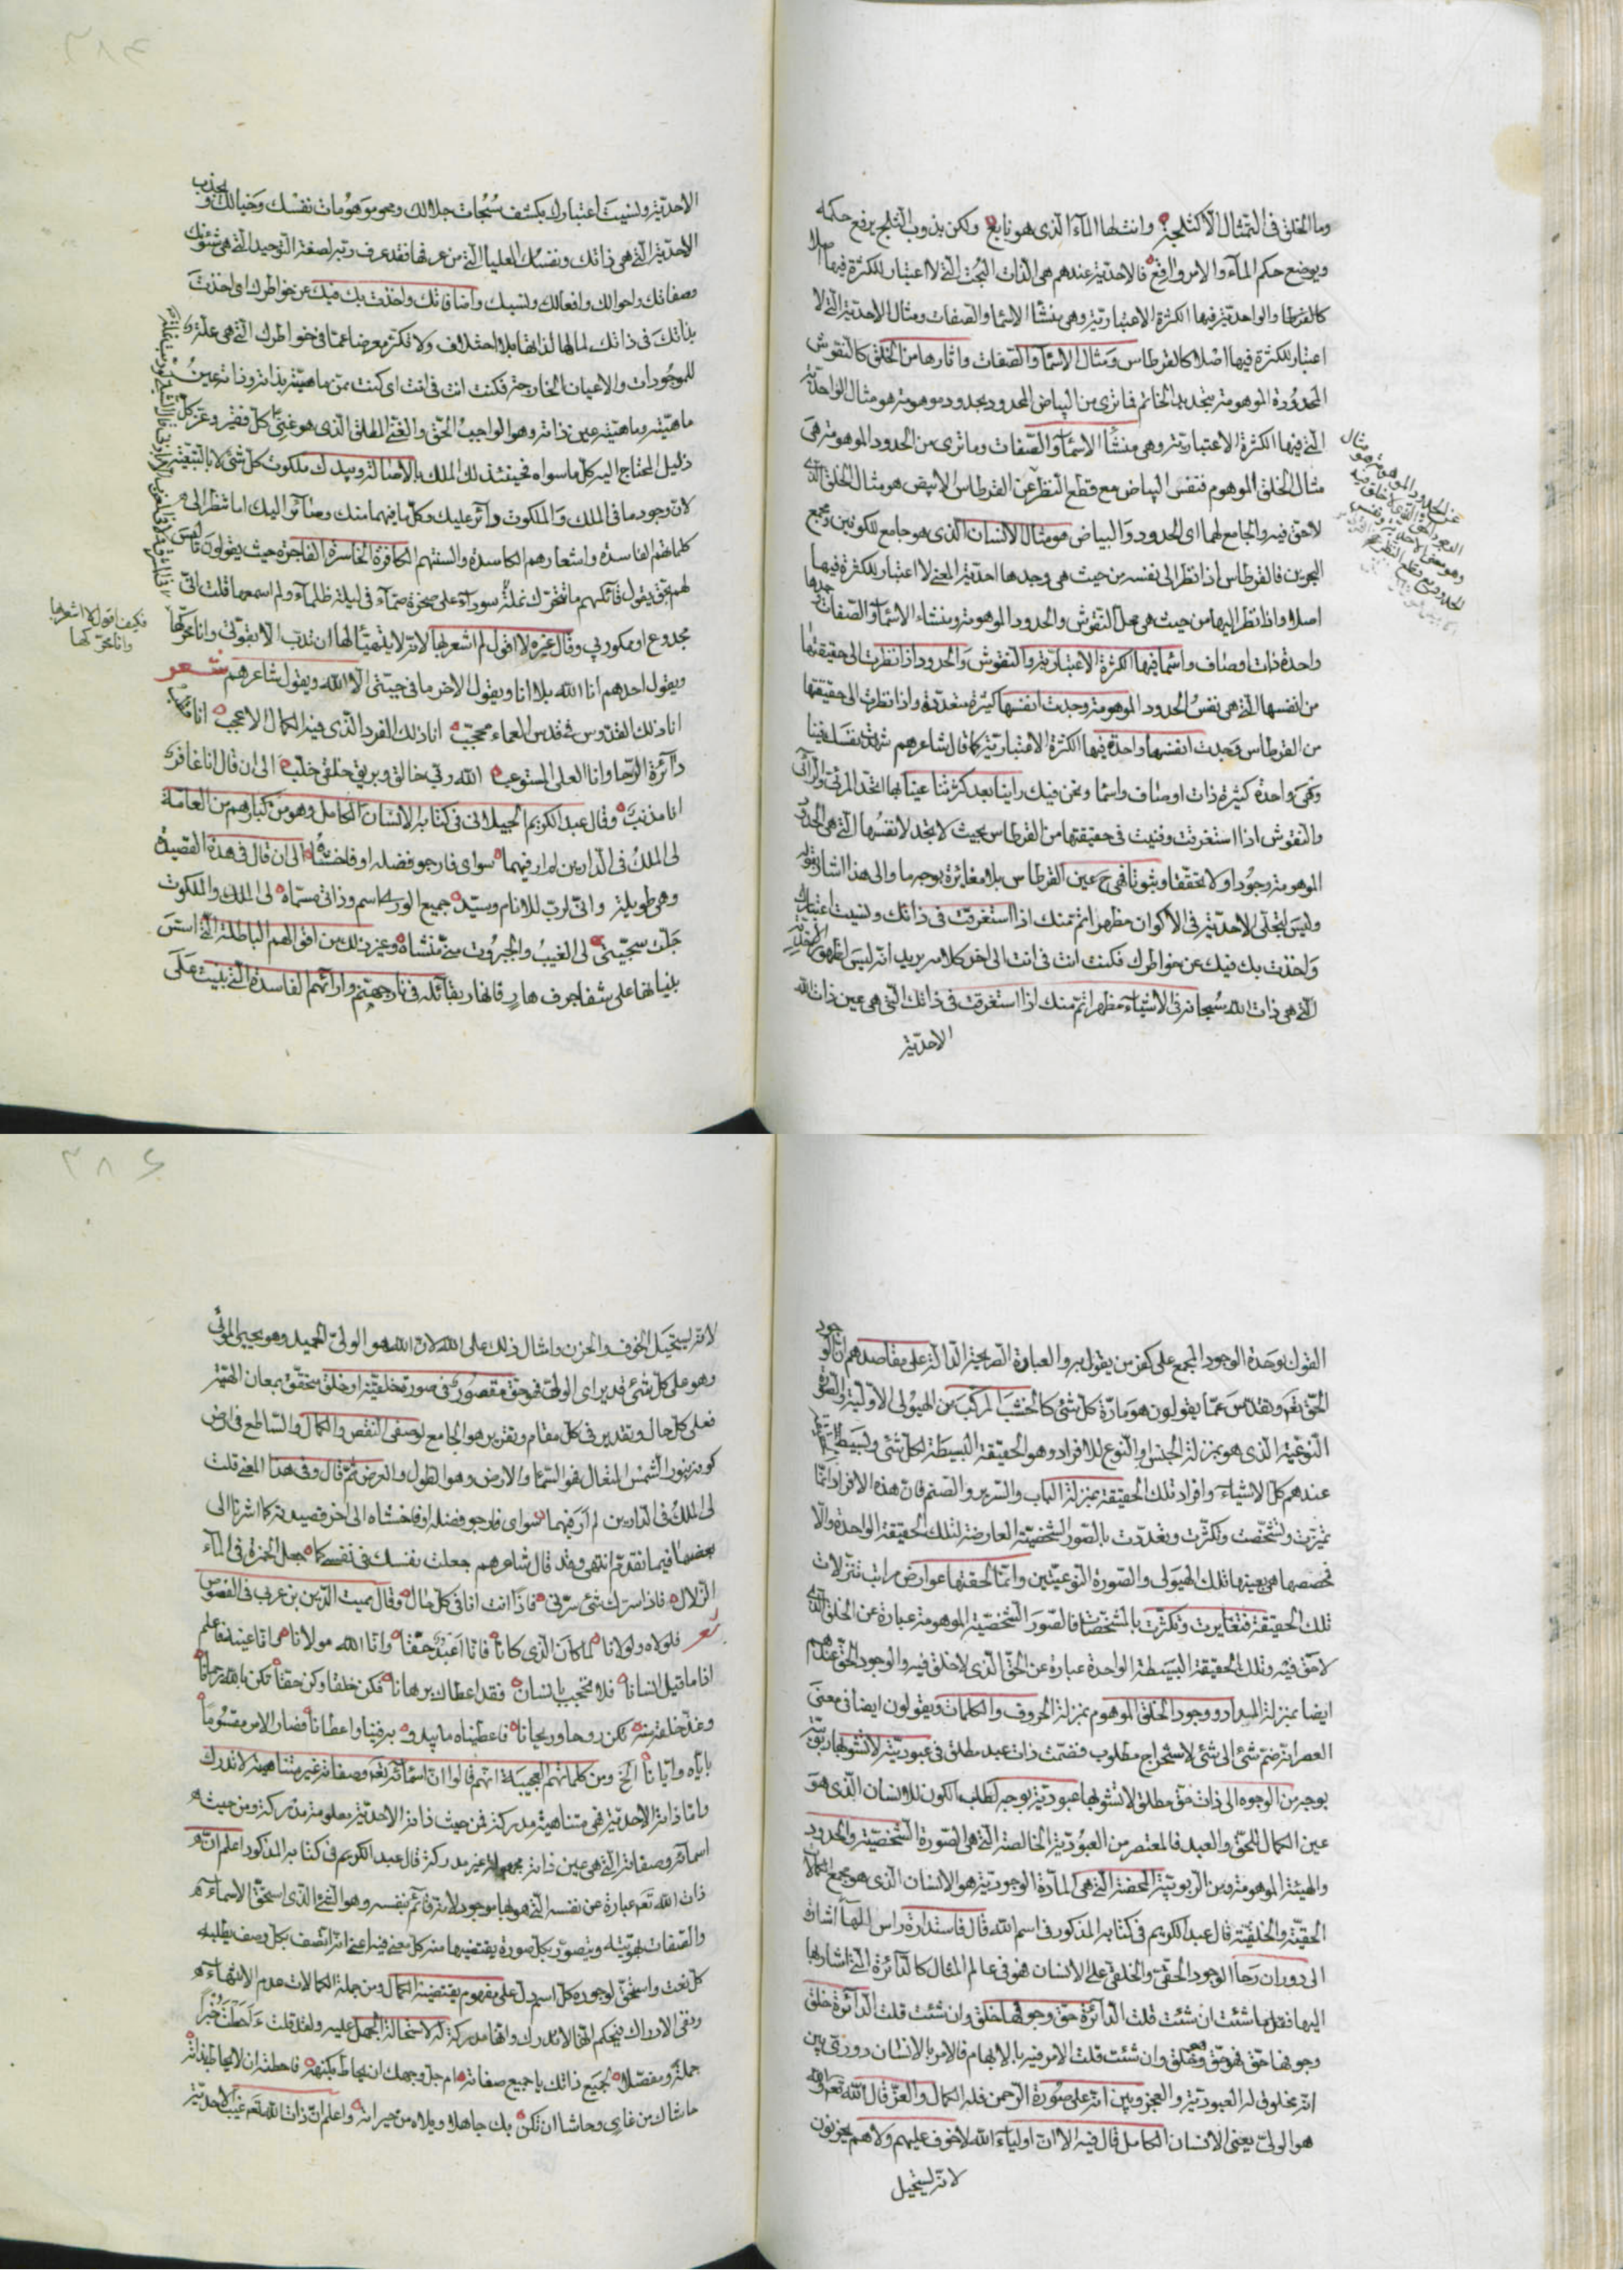 وما الخلق في التمثال الا كثلجة وانت لها الماء الذي هو نابع ولكن بذوب الثلج يرفع حكمه
ويوضع حكم الماء والامر واقع فالاحدية عندهم هي الذات البحت التي لا اعتبار للكثرة فيها اصلا
كالقرطاس والواحدية فيها الكثرة الاعتبارية وهي منشأ الاسماء والصفات ومثال الاحدية التي لا
اعتبار للكثرة فيها اصلا كالقرطاس ومثال الاسماء والصفات واثارها من الخلق كالنقوش
المحدودة الموهومة بتحديد الخاتم فما ترى من البياض المحدود بحدود موهومة هو مثال الواحدية
التي فيها الكثرة الاعتبارية وهي منشأ الاسماء والصفات وما ترى من الحدود الموهومة هي
مثال الخلق الموهوم فنفس البياض مع قطع النظر عن القرطاس الابيض هو مثال الخلق الذي
لا حق فيه والجامع لهما اي الحدود والبياض هو مثال الانسان الذي هو جامع للكونين ومجمع
البحرين فالقرطاس اذا نظر الى نفسه من حيث هي وجدها احدية المعنى لا اعتبار للكثرة فيها
اصلا واذا نظر اليها من حيث هي محل النقوش والحدود الموهومة ومنشاء الاسماء والصفات وجدها
واحدة ذات اوصاف واسما فيها الكثرة الاعتبارية والنقوش والحدود اذا نظرت الى حقيقتها
من انفسها التي هي نفس الحدود الموهومة وجدت انفسها كثيرة متعددة واذا نظرت الى حقيقتها
من القرطاس وجدت انفسها واحدة فيها الكثرة الاعتبارية كما قال شاعرهم شهدت نفسك فينا
وهي واحدة كثيرة ذات اوصاف واسما ونحن فيك راينا بعد كثرتنا عينا بها اتحد المرئي والرائي
والنقوش اذا استغرقت وفنيت في حقيقتها من القرطاس بحيث لا تجد لانفسها التي هي الحدود
الموهومة وجودا ولا تحققا وثبوتا فهي ح عين القرطاس بلا مغائرة بوجه ما والى هذا اشار بقوله
وليس لتجلي الاحدية في الاكوان مظهر اتم منك اذا استغرقت في ذاتك ونسيت اعتبارك
واخذت بك فيك عن خواطرك فكنت انت في انت الى اخر كلامه يريد انه ليس لظهور الاحدية
التي هي ذات الله سبحانه في الاشياء مظهر اتم منك اذا استغرقت في ذاتك التي هي عين ذات الله
الاحدية
الاحدية ونسيت اعتبارك بكشف سبحات جلالك ومحو موهومات نفسك وخيالك و بجذب
الاحدية التي هي ذاتك ونفسك العليا التي من عرفها فقد عرف ربه لصفة التوحيد التي هي شئونك
وصفاتك واحوالك وافعالك ونسبك واضافاتك واخذت بك فيك عن خواطرك اي اخذت
بذاتك في ذاتك لما لها لذاتها بلا اختلاف ولا تكثر معرضا عما في خواطرك التي هي علة
للموجودات والاعيان الخارجة فكنت انت في انت اي كنت ممن ماهيته بذاته وذاته عين
ماهيته وماهيته عين ذاته وهو الواجب الحق والغني المطلق الذي هو غني كل فقير وعز كل
ذليل المحتاج اليه كل ما سواه فحينئذ لك الملك بالاصالة وبيدك ملكوت كل شئ لا بالتبعية
لان وجود ما في الملك والملكوت واثر عليك وكل ما فيهما منك اليك اما تنظر الى
كلماتهم الفاسدة واشعارهم الكاسدة والسنتهم الكافرة الخاسرة الفاجرة حيث يقولون ما ليس
لهم بحق يقول قائلهم ما تتحرك نملة سوداء على صخرة صماء في ليلة ظلماء ولم اسمعها قلت اني
مخدوع او ممكور بي وقال غيره لا اقول لم اشعر بها لانه لا يتهيأ لها ان تدب الا بقوتي وانا محركها
ويقول احدهم انا الله بلا انا ويقول الاخر ما في جبتي الا الله ويقول شاعرهم شعر
انا ذلك القدوس في قدس العماء محجب انا ذلك الفرد الذي فيه الكمال الاعجب انا قطب
دائرة الرحا وانا العلى المستوعب الله ربي خالق وبريق خلقي خلب الى ان قال انا غافر
انا مذنب وقال عبد الكريم الجيلاني في كتابه الانسان الكامل وهو من كبارهم من العامة
لي الملك في الدارين لم ار فيهما سواي فارجو فضله او فاخشاه الى ان قال في هذه القصيدة
وهي طويلة واني لرب للانام وسيد جميع الورى اسم وذاتي مسماه لي الملك والملكوت
جلت سجيتي لي الغيب والجبروت مني منشاه وغير ذلك من اقوالهم الباطلة التي استس
بنيانها على شفا جرف هار فانهار بقائله في نار جهنم وارائهم الفاسدة التي بنيت على
فكيف اقول لا اشعر بها
وانا محركها
القول بوحدة الوجود المجمع على كفر من يقول به والعبارة الصريحة الدالة على مقاصدهم ان الوجود
الحق تعه وتقدس عما يقولون هو مادة كل شئ كالخشب المركب من الهيولى الاولية والصورة
النوعية الذي هو بمنزلة الجنس او النوع للافراد وهو الحقيقة البسيطة لكل شئ وبسيط الحقيقة
عندهم كل الاشياء وافراد تلك الحقيقة بمنزلة الباب والسرير والصنم فان هذه الافراد انما
تميزت وتشخصت وتكثرت وتعددت بالصور الشخصية العارضة لتلك الحقيقة الواحدة والا
فحصصها هي بعينها تلك الهيولى والصورة النوعيتين وانما لحقتها عوارض مراتب تنزلات
تلك الحقيقة فتغايرت وتكثرت بالمشخصات فالصور الشخصية الموهومة عبارة عن الخلق الذي
لا حق فيه وتلك الحقيقة البسيطة الواحدة عبارة عن الحق الذي لا خلق فيه والوجود الحق عندهم
ايضا بمنزلة المداد ووجود الخلق الموهوم بمنزلة الحروف والكلمات ويقولون ايضا في معنى
العصر انه ضم شئ الى شئ لاستخراج مطلوب فضمت ذات عبد مطلق في عبوديته لا تشوبها ربوبية
بوجه من الوجوه الى ذات حق مطلق لا تشوبها عبودية بوجه لطلب الكون للانسان الذي هو
عين الكمال الحق والعبد فالمعتصر من العبودية الخالصة التي هي الصورة الشخصية والحدود
والهيئة الموهومة ومن الربوبية المحضة التي هي المادة الوجودية هو الانسان الذي هو مجمع الكمالات
الحقية والخلقية قال عبد الكريم في كتابه المذكور في اسم الله قال فاستدارة راس الهاء اشارة
الى دوران رحا الوجود الحقي والخلقي على الانسان فهو في عالم المثال كالدائرة التي اشار بها
اليها فقل ما شئت ان شئت قلت الدائرة حق وجوفها خلق وان شئت قلت الدائرة خلق
وجوفها حق فهو حق وهو خلق وان شئت قلت الامر فيه بالابهام فالامر بالانسان دوري بين
انه مخلوق له العبودية والعجز وبين انه على صورة الرحمن فله الكمال والعز قال الله تعه والله
هو الولي يعني الانسان الكامل قال فيه الا ان اولياء الله لا خوف عليهم ولا هم يحزنون
لانه يستحيل
لانه يستحيل الخوف والحزن وامثال ذلك على الله لان الله هو الولي الحميد وهو يحيي الموتى
وهو على كل شئ قدير اي الولي فهو حق مقصور في صورة خلقية او خلق متحقق بمعان الهية
فعلى كل حال وتقدير في كل مقام وتقرير هو الجامع لوصفي النقص والكمال والساطع في ارض
كونه بنور الشمس المتعال فهو السماء والارض وهو الطول والعرض ثم قال وفي هذا المعنى قلت
لي الملك في الدارين لم ار فيهما سواي فارجو فضله او فاخشاه الى اخر قصيدته كما اشرنا الى
بعضها فيما تقدم انتهى وقد قال شاعرهم جعلت نفسك في نفسي كما جعل الخمرة في الماء
الزلال فاذا سرك شئ سرني فاذا انت انا في كل حال وقال مميت الدين بن عربي في الفصوص
شعر فلولاه ولولانا لما كان الذي كانا فانا اعبد حقا وانا الله مولانا وانا عينه فاعلم
اذا ما قيل انسانا فلا تحجب بانسان فقد اعطاك برهانا فكن خلقا وكن حقا تكن بالله رحمانا
وغذ خلقه منه تكن روحا وريحانا فاعطيناه ما يبدو به فينا واعطانا فصار الامر مقسوما
باياه وايانا الخ ومن كلماتهم العجيبة انهم قالوا ان اسمائه تعه وصفاته غير متناهية لا تدرك
واما ذاته الاحدية فهي متناهية مدركة فمن حيث ذاته الاحدية معلومة مدركة ومن حيث
اسمائه وصفاته التي هي عين ذاته مجهولة غير مدركة قال عبد الكريم في كتابه المذكور اعلم ان
ذات الله تعه عبارة عن نفسه التي هو بها موجود لانه قائم بنفسه وهو الشئ الذي استحق الاسماء
والصفات بهويته ويتصور بكل صورة يقتضيها منه كل معنى فيه اعني انه اتصف بكل وصف يطلبه
كل نعت واستحق لوجوده كل اسم دل على مفهوم يقتضيه الكمال ومن جملة الكمالات عدم الانتهاء
ونفي الادراك فيحكم انها لا تدرك وانها مدركة له لاستحالة الجهل عليه ولقد قلت ءاحطت خبرا
جملة ومفصلا بجميع ذاتك يا جميع صفاته ام جل وجهك ان يحاط بكنهه فاحطته ان لا يحاط بذاته
حاشاك من غاي وحاشا ان تكن بك جاهلا ويلاه من حيراته واعلم ان ذات الله تعه غيب الاحدية